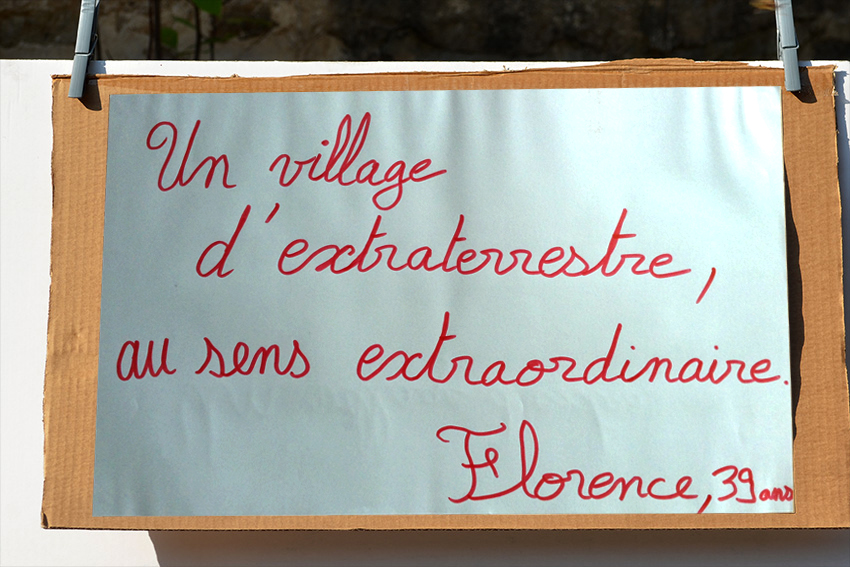 Un village
d'extraterrestre,
au sens extraordinaire.
Florence, 39 ans